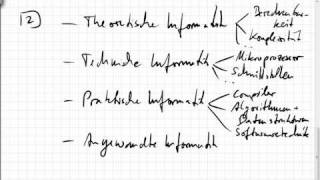 12) – Theoretische Informatik < Berechenbar-
keit
Komplexität
– Technische Informatik < Mikroprozessor
Schnittstellen
– Praktische Informatik < Compiler
Algorithmen +
Datenstrukturen
Softwaretechnik
– Angewandte Informatik